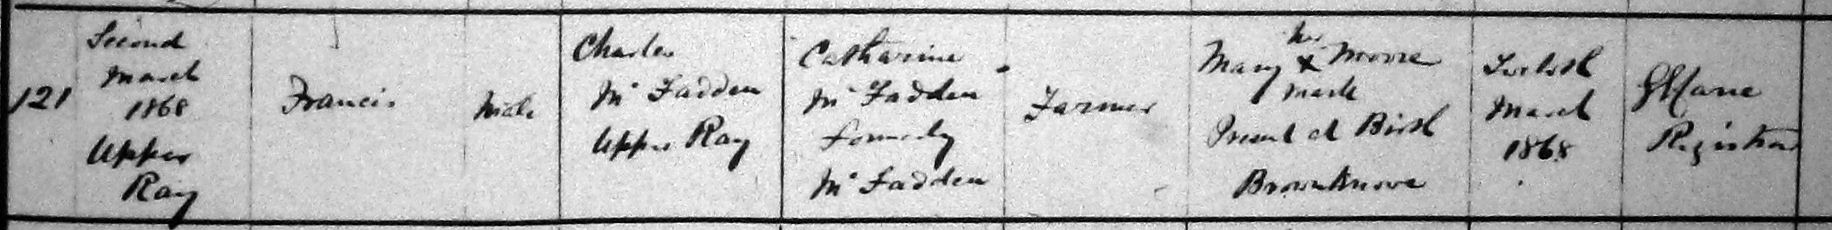 121
Second
March
1868
Upper
Ray
Francis
Male
Charles
Mc Fadden
Upper Ray
Catharine
Mc Fadden
formerly
Mc Fadden
Farmer
her
Mary X Moore
mark
Present at Birth
Brownknowe
Twelfth
March
1868
Kane
Registrar